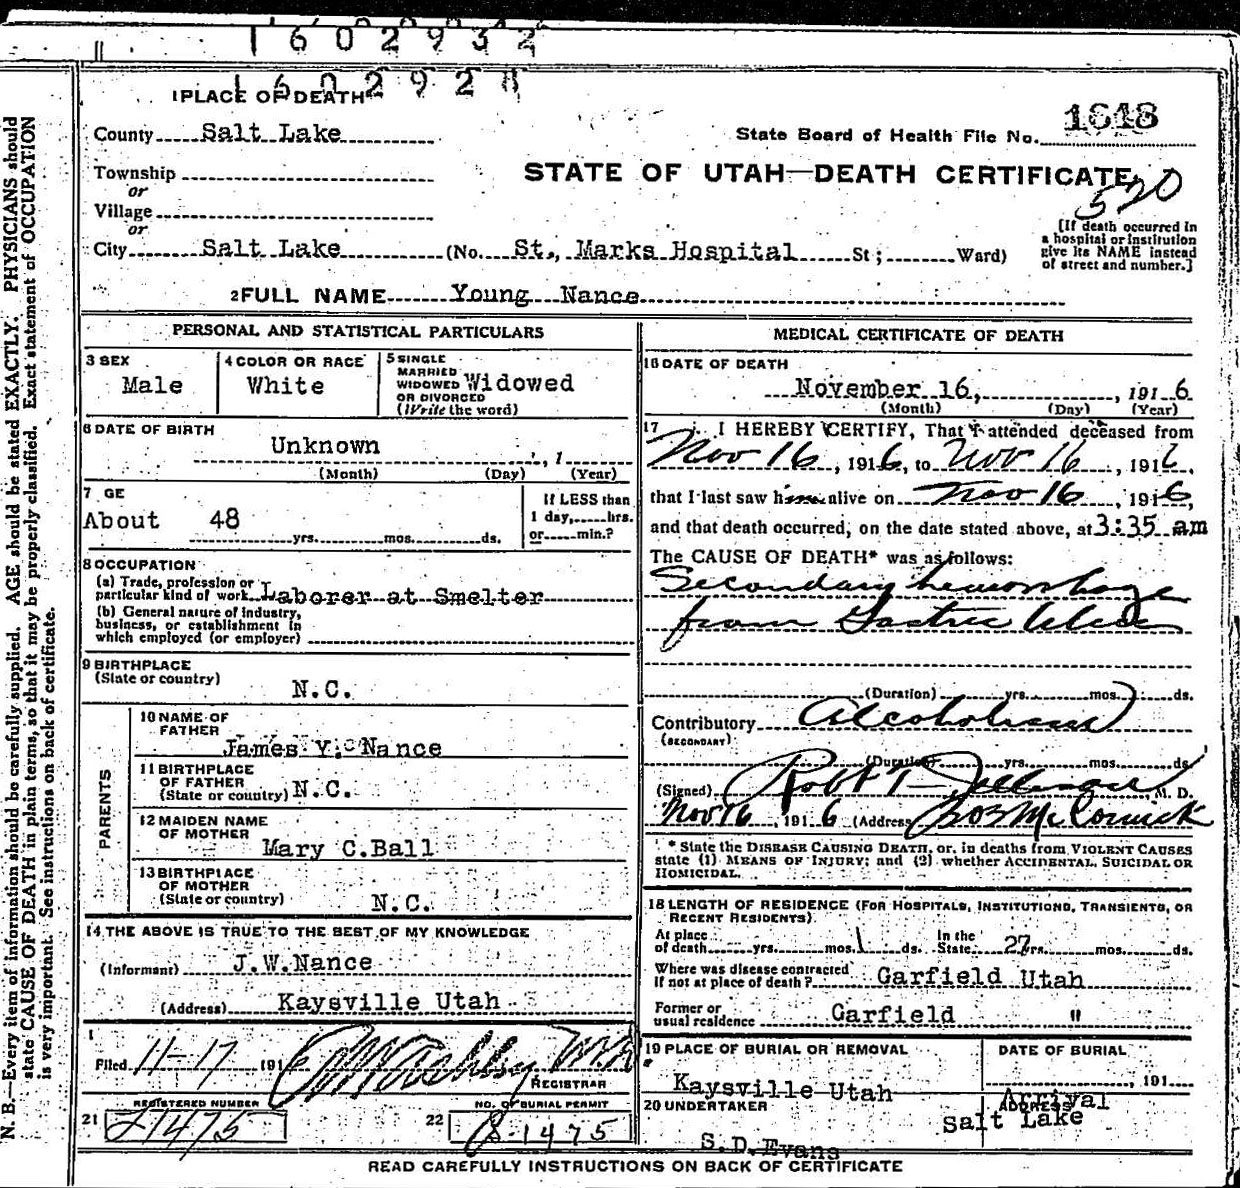 1602932
160292
1 PLACE OF DEATH
County Salt Lake
State Board of Health File No. 1648
Township
or
STATE OF UTAH—DEATH CERTIFICATE
520
Village
or
City Salt Lake (No. St., Marks Hospital St; Ward)
[If death occurred in
a hospital or institution
give its NAME instead
of street and number.]
2 FULL NAME Young Nance
PERSONAL AND STATISTICAL PARTICULARS
3 SEX
Male
4 COLOR OR RACE
White
5 SINGLE
MARRIED
WIDOWED Widowed
OR DIVORCED
(Write the word)
6 DATE OF BIRTH
Unknown , 1
(Month) (Day) (Year)
7 GE
About 48
yrs. mos. ds.
If LESS than
1 day, hrs.
or min.?
8 OCCUPATION
(a) Trade, profession or
particular kind of work Laborer at Smelter
(b) General nature of industry,
business, or establishment in
which employed (or employer)
9 BIRTHPLACE
(State or country) N.C.
PARENTS
10 NAME OF
FATHER
James Y. Nance
11 BIRTHPLACE
OF FATHER
(State or country) N.C.
12 MAIDEN NAME
OF MOTHER
Mary C.Ball
13 BIRTHPLACE
OF MOTHER
(State or country) N.C.
14 THE ABOVE IS TRUE TO THE BEST OF MY KNOWLEDGE
(Informant) J.W.Nance
(Address) Kaysville Utah
Filed 11-17 191 6
REGISTRAR
REGISTERED NUMBER
21 1475
NO. OF BURIAL PERMIT
22 B-1475
MEDICAL CERTIFICATE OF DEATH
16 DATE OF DEATH
November 16, , 191 6
(Month) (Day) (Year)
17 I HEREBY CERTIFY, That I attended deceased from
Nov 16 , 191 6, to Nov 16 , 191 6,
that I last saw him alive on Nov 16 , 191 6,
and that death occurred, on the date stated above, at 3:35 am
The CAUSE OF DEATH* was as follows:
Secondary hemorrhage
from Gastric Ulcer
(Duration) yrs. mos. ds.
Contributory Alcoholism
(SECONDARY)
(Duration) yrs. mos. ds.
(Signed) Robt T , M. D.
Nov 16 , 191 6 (Address McCornick
* State the DISEASE CAUSING DEATH, or, in deaths from VIOLENT CAUSES
state (1) MEANS OF INJURY; and (2) whether ACCIDENTAL, SUICIDAL OR
HOMICIDAL.
18 LENGTH OF RESIDENCE (FOR HOSPITALS, INSTITUTIONS, TRANSIENTS, OR
RECENT RESIDENTS).
At place
of death yrs. mos. 1 ds.
In the
State 27 yrs. mos. ds.
Where was disease contracted
if not at place of death? Garfield Utah
Former or
usual residence Garfield "
19 PLACE OF BURIAL OR REMOVAL
Kaysville Utah
DATE OF BURIAL
, 191
Arrival
20 UNDERTAKER
S.D.Evans
ADDRESS
Salt Lake
READ CAREFULLY INSTRUCTIONS ON BACK OF CERTIFICATE
N. B.—Every item of information should be carefully supplied. AGE should be stated EXACTLY. PHYSICIANS should
state CAUSE OF DEATH in plain terms, so that it may be properly classified. Exact statement of OCCUPATION
is very important. See instructions on back of certificate.